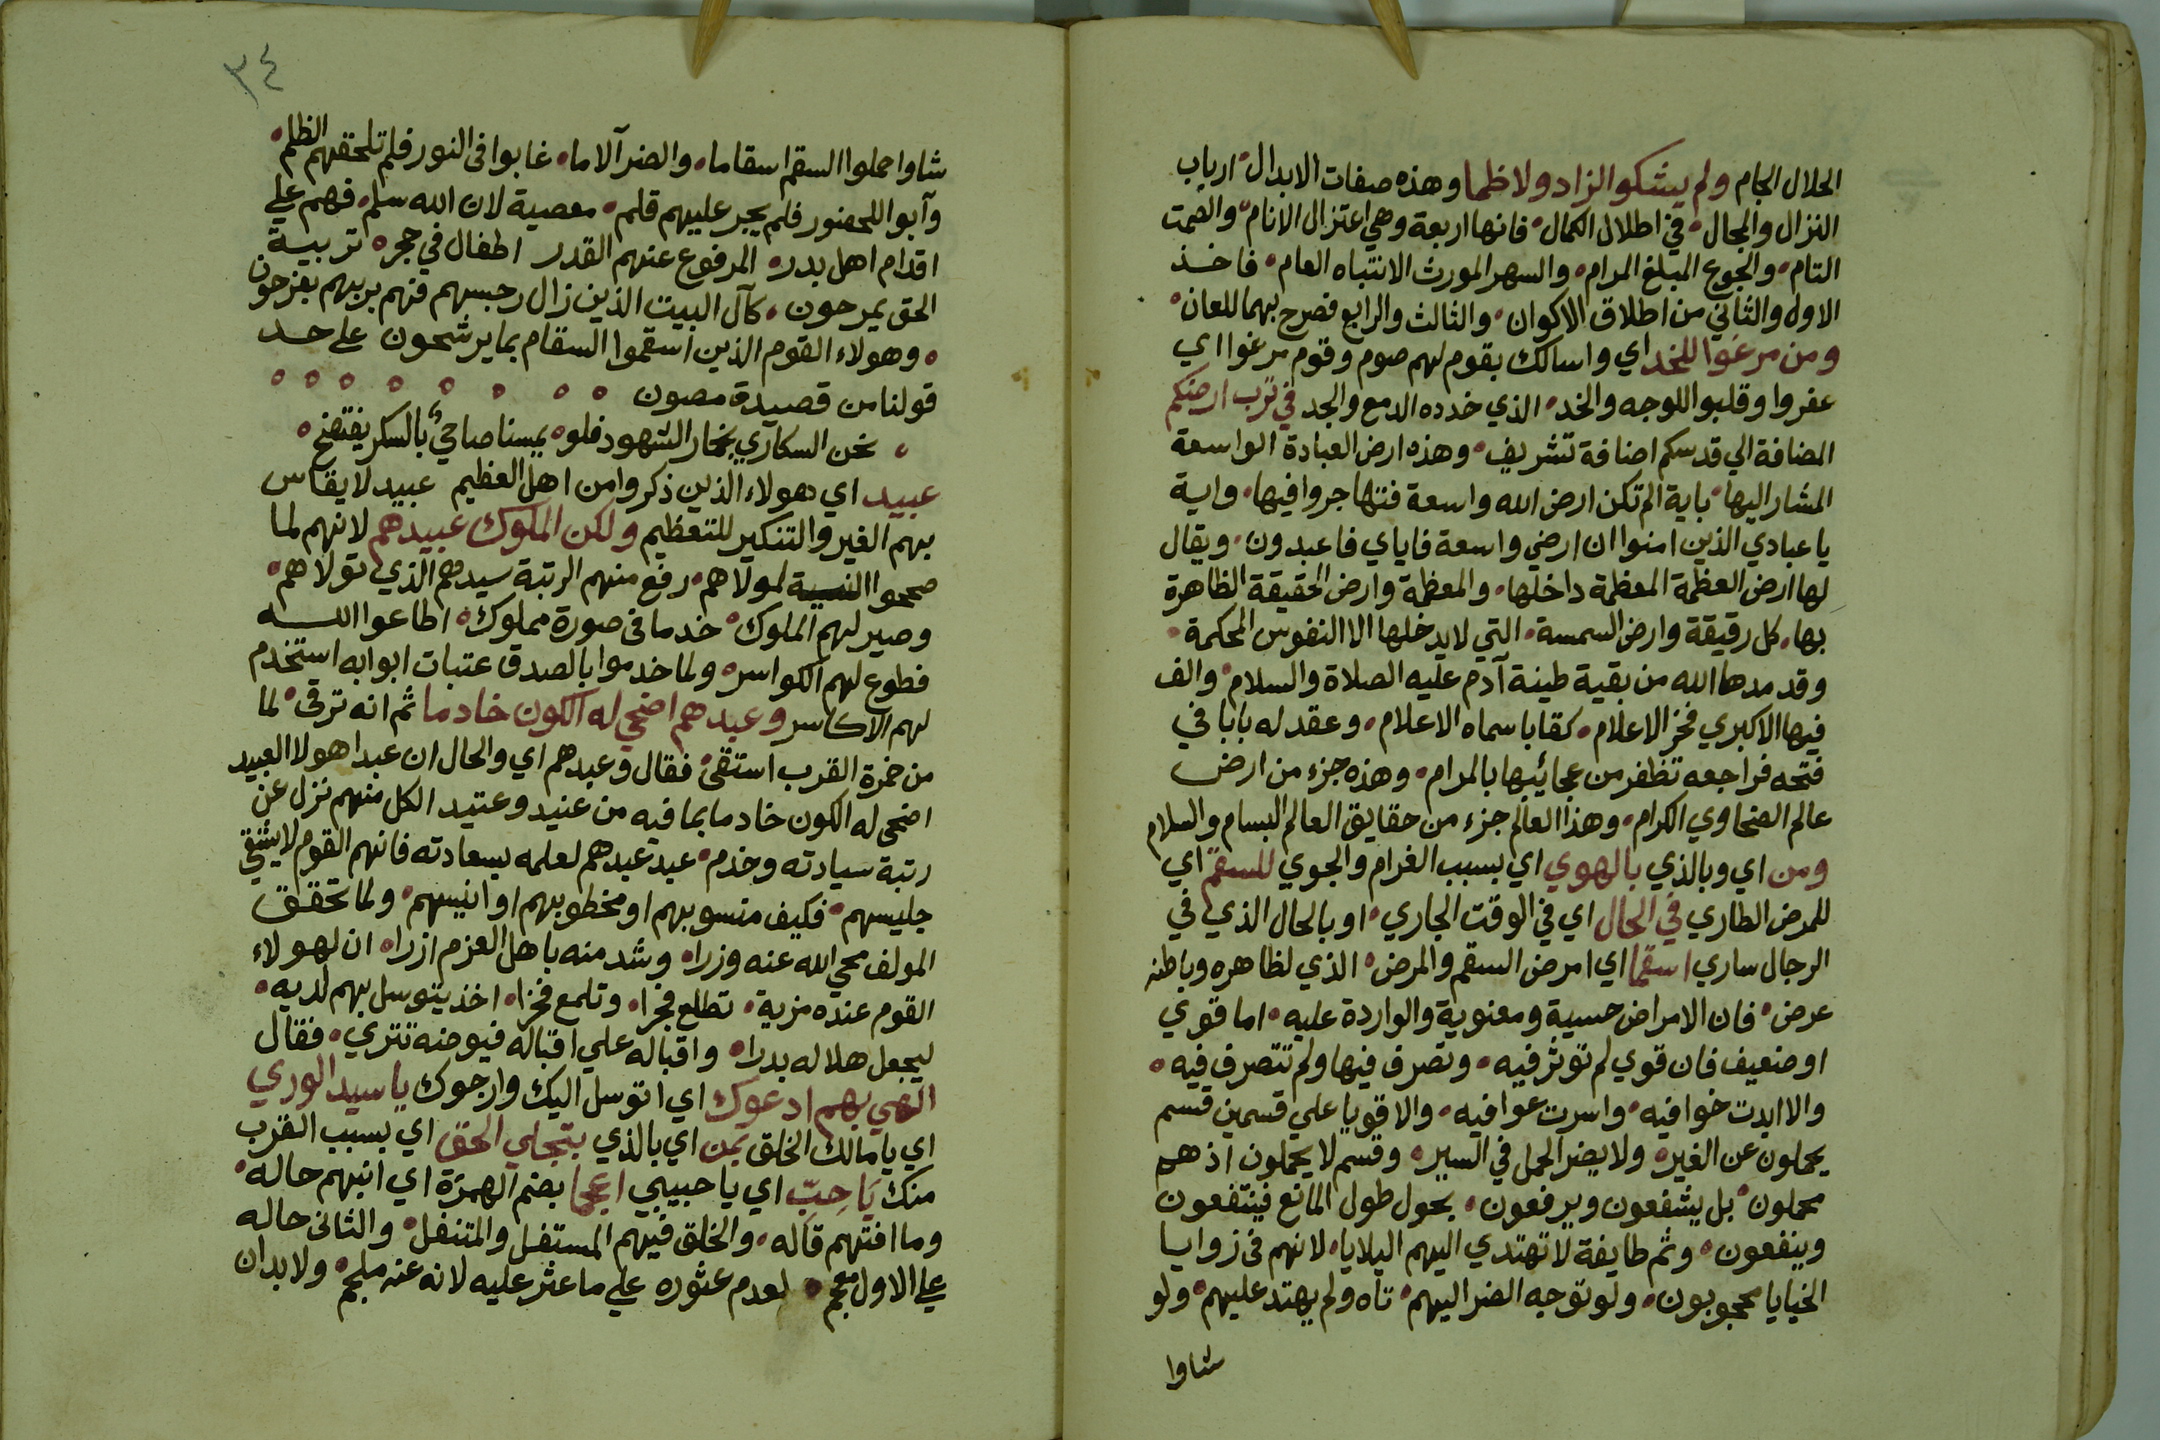 الحلال الجام ولم يشكو الزاد ولا ظما وهذه صفات الابدال ارباب
النزال والمجال في اطلال الكمال فانها اربعة وهي اعتزال الانام والصمت
التام والجوع المبلغ المرام والسهر المورث الانتباه العام فاخذ
الاول والثاني من اطلاق الاكوان والثالث والرابع فصرح بهما للعان
ومن مرغوا للخد اي واسالك بقوم لهم صوم وقوم مرغوا اي
عفروا وقلبوا الوجه والخد الذي خدده الدمع والجد في ترب ارضكم
المضافة الي قدسكم اضافة تشريف وهذه ارض العبادة الواسعة
المشار اليها باية الم تكن ارض الله واسعة فتهاجروا فيها واية
يا عبادي الذين امنوا ان ارضي واسعة فاياي فاعبدون ويقال
لها ارض العظمة المعظمة داخلها والمعظمة وارض الحقيقة الظاهرة
بها كل رقيقة وارض السمسة التي لا يدخلها الا النفوس المحكمة
وقد مدها الله من بقية طينة آدم عليه الصلاة والسلام والف
فيها الاكبري فخر الاعلام كتابا سماه الاعلام وعقد له بابا في
فتحه فراجعه تظفر من عجائبها بالمرام وهذه جزء من ارض
عالم الضحاوي الكرام وهذا العالم جزء من حقايق العالم البسام والسلام
ومن اي وبالذي بالهوي اي بسبب الغرام والجوي للسقم اي
للمرض الطاري في الحال اي في الوقت الجاري او بالحال الذي في
الرجال ساري اسقما اي امرض السقم والمرض الذي لظاهره وباطنه
عرض فان الامراض حسية ومعنوية والواردة عليه اما قوي
او ضعيف فان قوي لم توثر فيه وتصرف فيها ولم تتصرف فيه
والا ابدت خوافيه واسرت عوافيه والاقويا علي قسمين قسم
يحملون عن الغير ولا يضر الحمل في السير وقسم لا يحملون اذ هم
محملون بل يشفعون ويرفعون بحول طول المانع فينتفعون
وينفعون وثم طايفة لا تهتدي اليهم البلايا لانهم في زوايا
الخبايا محجوبون ولو توجه الضر اليهم تاه ولم يهتد عليهم ولو
شاوا
٣٤
شاوا حملوا السقم اسقاما والضر آلاما غابوا في النور فلم تلحقهم الظلم
وآبوا للحضور فلم يجر عليهم قلم معصية لان الله سلم فهم علي
اقدام اهل بدر المرفوع عنهم القدر اطفال في حجر تربية
الحق يمرحون كآل البيت الذين زال رجسهم فهم بربهم يفرحون
وهولاء القوم الذين اسقموا السقام بما يرشحون علي حد
قولنا من قصيدة مصون
نحن السكارى بخمار الشهود فلو يمسنا صاحئ بالسكر يفتضح
عبيد اي هولاء الذين ذكروا من اهل العظيم عبيد لا يقاس
بهم الغير والتنكير للتعظيم ولكن الملوك عبيدهم لانهم لما
صححوا النسبة لمولاهم رفع منهم الرتبة سيدهم الذي تولاهم
وصير لهم الملوك خدما في صورة مملوك اطاعوا الله
فطوع لهم الكواسر ولما خدموا بالصدق عتبات ابوابه استخدم
لهم الاكاسر وعبدهم اضحي له الكون خادما ثم انه ترقي لما
من خمرة القرب استقي فقال وعبدهم اي والحال ان عبدا هولا العبيد
اضحي له الكون خادما بما فيه من عنيد وعتيد الكل منهم نزل عن
رتبة سيادته وخدم عبد عبدهم لعلمه بسعادته فانهم القوم لا يشقي
جليسهم فكيف منسوبهم او مخطوبهم او انيسهم ولما تحقق
المولف محي الله عنه وزرا وشد منه باهل العزم ازرا ان لهولاء
القوم عنده مزية تطلع فجرا وتلمع فخرا اخذ يتوسل بهم لديه
ليجعل هلاله بدرا واقباله علي اقباله فيوضه تتري فقال
الهي بهم ادعوك اي اتوسل اليك وارجوك يا سيد الوري
اي يا مالك الخلق بمن اي بالذي بتجلي الحق اي بسبب القرب
منك يا حِبّ اي يا حبيبي اعجما بضم الهمزة اي انبهم حاله
وما افتهم قاله والخلق فيهم المستفل والمتنفل والثاني حاله
علي الاول معجم لعدم عثوره علي ما عثر عليه لانه عنه ملجم ولا بد ان